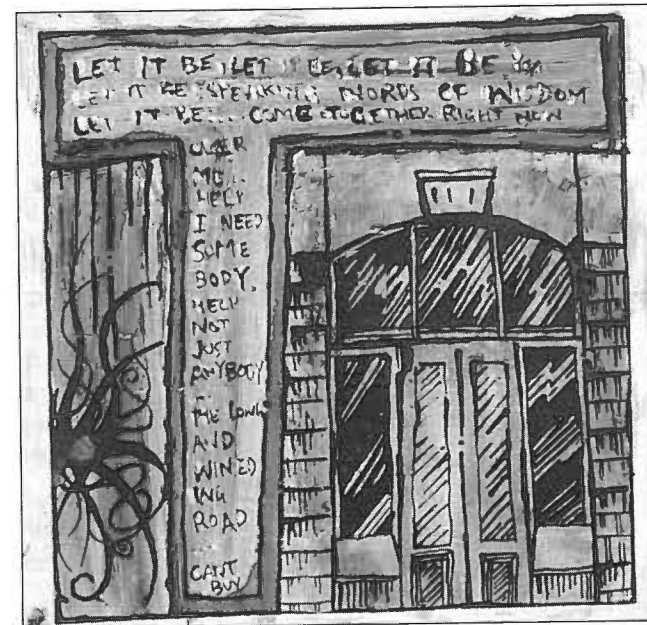 LET IT BE, LET IT BE, LET IT BE
LET IT BE SPEAKING WORDS OF WISDOM
LET IT BE... COME TOGETHER RIGHT NOW
OVER
ME...
HELP
I NEED
SOME
BODY,
HELP
NOT
JUST
ANYBODY
...
THE LONG
AND
WINED
ING
ROAD
...
CANT
BUY